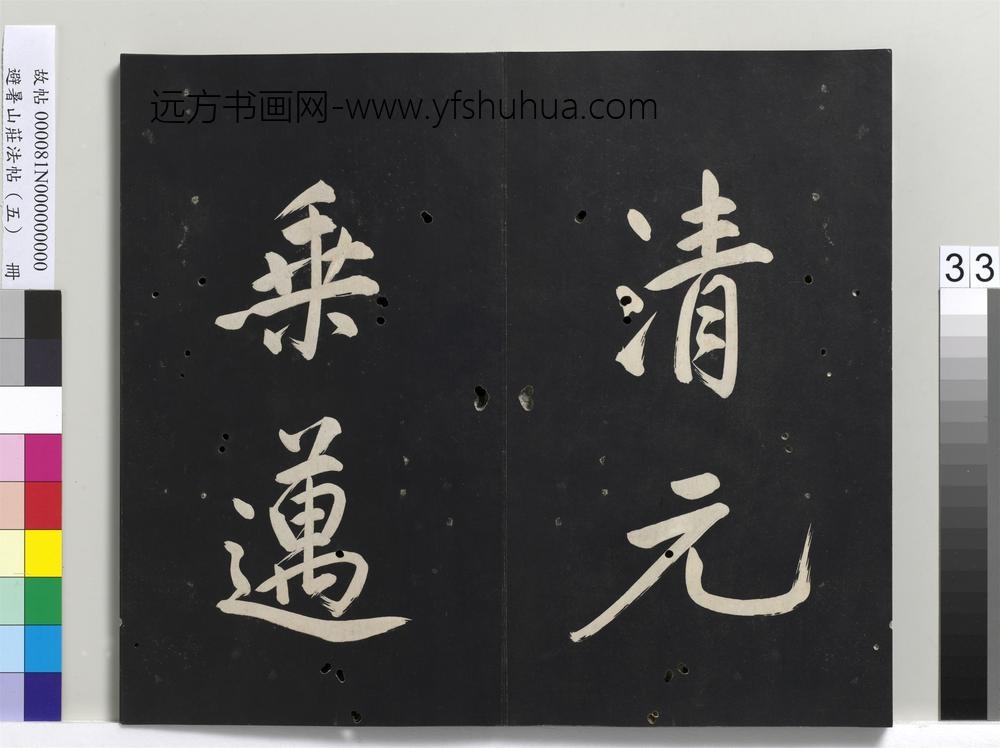 远方书画网-www.yfshuhua.com
清元
乗邁
故帖 000081N000000000
避暑山莊法帖（五） 冊
33